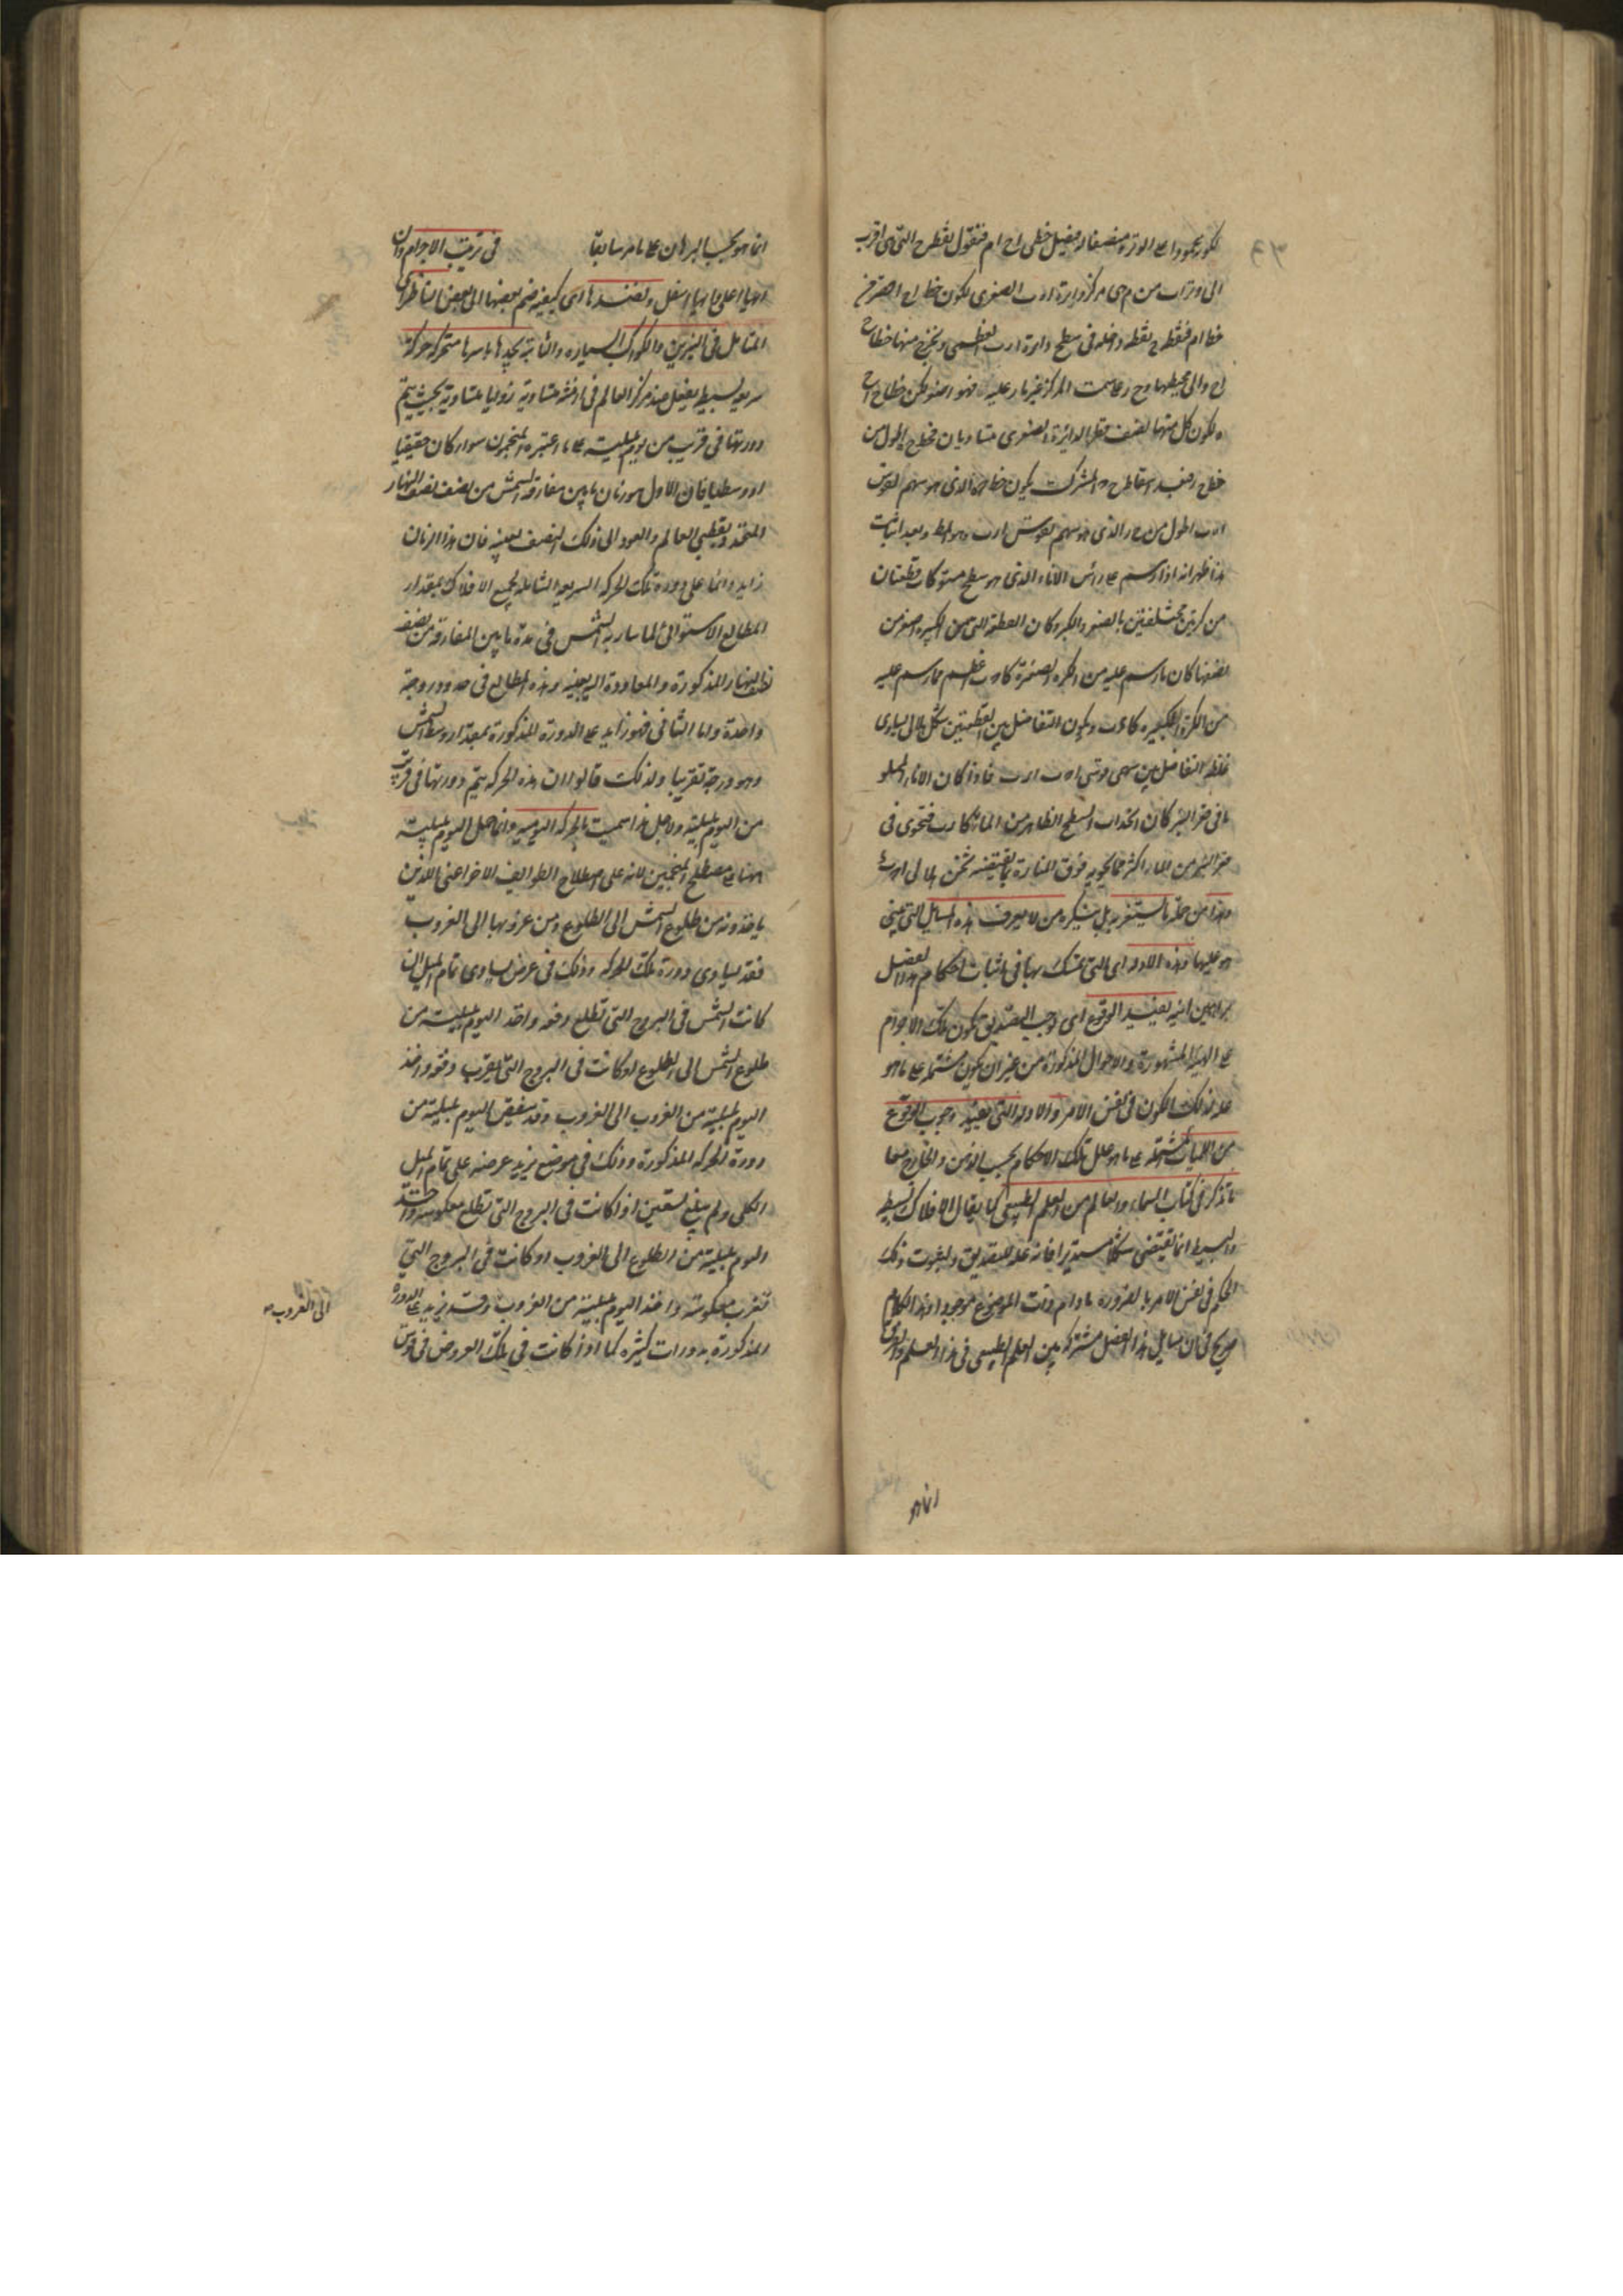 لكونه عمودا على الوتر منصفا له فيصل خطى ا ح ام فنقول نقطة ح التى هى اقرب
الى وتر ا ب من م هى مركز دايرة ا د ب الصغرى لكون خط ا ح اصغر من
خط ام فنقطة ح نقطة داخله فى سطح دايرة ا ر ب العظمى ويخرج منها خطا
ا ح والى محيطها وح ر على سمت المركز غير مار عليه فهو اصغر لكن خطا ح ا ح
ه لكون كل منهما نصف قطر الدايرة الصغرى متساويان فخط ح ه اطول من
خط ح ر فبعد اسقاط ح المشترك يكون خط الذى هو سهم القوس
ا ه ب اطول من ر الذى هو سهم لقوس ا ر ب وهو المط وبعد اثبات
هذا ظهر انه اذا رسم على رأس الاناء الذى هو سطح مستو كان قطعتان
من كرتين مختلفتين بالصغر والكبر وكان القطعة التى من الكبيرة اصغر من
نصفها كان ما رسم عليه من الكرة الصغيرة كا ه ب اعظم مما رسم عليه
من الكرة الكبيره كا ر ب ويكون التفاضل بين القطعتين شكل هلالى يساوى
غلظه التفاضل بين سهمى قوسى ا ه ب ا ر ب فاذا كان الاناء المملو
ماء فى قعر البئر كان احتداب السطح الظاهر من الماء كا ه ب فتحوى فى
قعر البئر من الماء اكثر مما يحويه فوق المنارة بما يقتضيه ثخن هلالى ا ه ب ر
وهذا من جملة ما يستغربه بل ينكره من لا يعرف هذه المسايل التى يبنى
هو عليها وهذه الادلة اى التى يتمسك بها فى اثبات احكام هذا الفصل
براهين انيه يفيد الوقوع اى وجب التصديق بكون تلك الاجرام
على الهيئة المشهورة والاحوال المذكورة من غير ان يكون مشتملة على ما هو
علة لذلك الكون فى نفس الامر والادلة التى يفيد وجوب الوقوع
من اللميات المشتملة على ما هو علل تلك الاحكام بحسب الذهن والخارج معا
ما تذكر فى كتاب السماء والعالم من العلم الطبيعى كما يقال الافلاك بسيطة
والبسيط انما يقتضى شكلا مستديرا فانه علة للتصديق ولثبوت ذلك
الحكم فى نفس الامر بالضرورة ما دام ذات الموضوع موجودا وهذا الكلام
صريح فى ان مسايل هذا الفصل مشتركة بين العلم الطبيعى فى هذا العلم والفرق
انما هو
انما هو بحسب البرهان على ما مر سابقا فى ترتيب الاجرام وان
ايها اعلى وايها اسفل ونضدها اى كيفية ضم بعضها الى بعض الناظر اى
المتامل فى النيرين والكواكب السياره والثابتة يجدها باسرها متحركة حركة
سريعة بسيطه يفعل عند مركز العالم فى ازمنه متساوية زوايا متساوية بحيث يتم
دورتها فى قريب من يوم بليلته على ما اعتبره المنجمون سواء كان حقيقيا
او وسطيا فان الاول هو زمان ما بين مفارقة الشمس من نصف نصف النهار
المتحد بقطبى العالم والعود الى ذلك النصف بعينه فان هذا الزمان
زايد دائما على دورة تلك الحركة السريعة الشاملة لجميع الافلاك بمقدار
المطالع الاستوائى لما سار به الشمس فى مدة ما بين المفارقة من نصف
نصف النهار المذكورة والمعاودة اليه بعينه وهذه المطالع فى حدود درجة
واحدة واما الثانى فهو زايد على الدورة المذكورة بمقدار وسط الشمس
وهو درجة تقريبا ولذلك قالوا ان هذه الحركة يتم دورتها فى قريب
من اليوم بليلته ولاجل هذا سميت بالحركة اليوميه وانما حمل اليوم بليلته
ههنا على مصطلح المنجمين لانه على اصطلاح الطوايف الاخر اعنى الذين
ياخذونه من طلوع الشمس الى الطلوع ومن غروبها الى الغروب
فقد يساوى دورة تلك الحركه وذلك فى عرض يساوى تمام الميل اذا
كانت الشمس فى البروج التى تطلع دفعه واخذ اليوم بليلته من
طلوع الشمس الى الطلوع او كانت فى البروج التى تغرب دفعه واخذ
اليوم بليلته من الغروب الى الغروب وقد ينقص اليوم بليلته من
دورة الحركه المذكورة وذلك فى موضع يزيد عرضه على تمام الميل
الكلى ولم يبلغ تسعين اذا كانت فى البروج التى تطلع معكوسة واخذ
اليوم بليلته من الطلوع الى الغروب او كانت فى البروج التى
تغرب معكوسة واخذ اليوم بليلته من الغروب وقد يزيد على الدورة
المذكورة بدورات كثيره كما اذا كانت فى تلك العروض فى قوس
الى الغروب